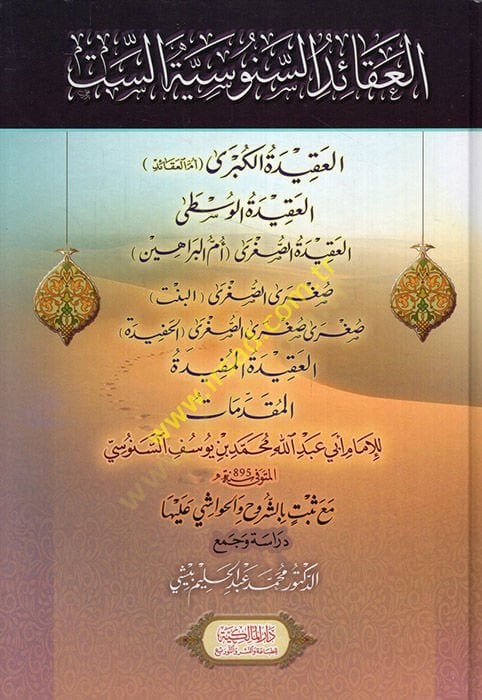 العقائد السنوسية الست
العقيدة الكبرى (أم العقائد)
العقيدة الوسطى
العقيدة الصغرى (أم البراهين)
صغرى الصغرى (البنت)
صغرى صغرى الصغرى (الحفيدة)
العقيدة المفيدة
المقدمات
للإمام أبي عبد الله محمد بن يوسف السنوسي
المتوفى سنة 895هـ
مع ثبت بالشروح والحواشي عليها
دراسة وجمع
الدكتور محمد عبد الحليم بيشي
دار المالكية
للطباعة والنشر والتوزيع